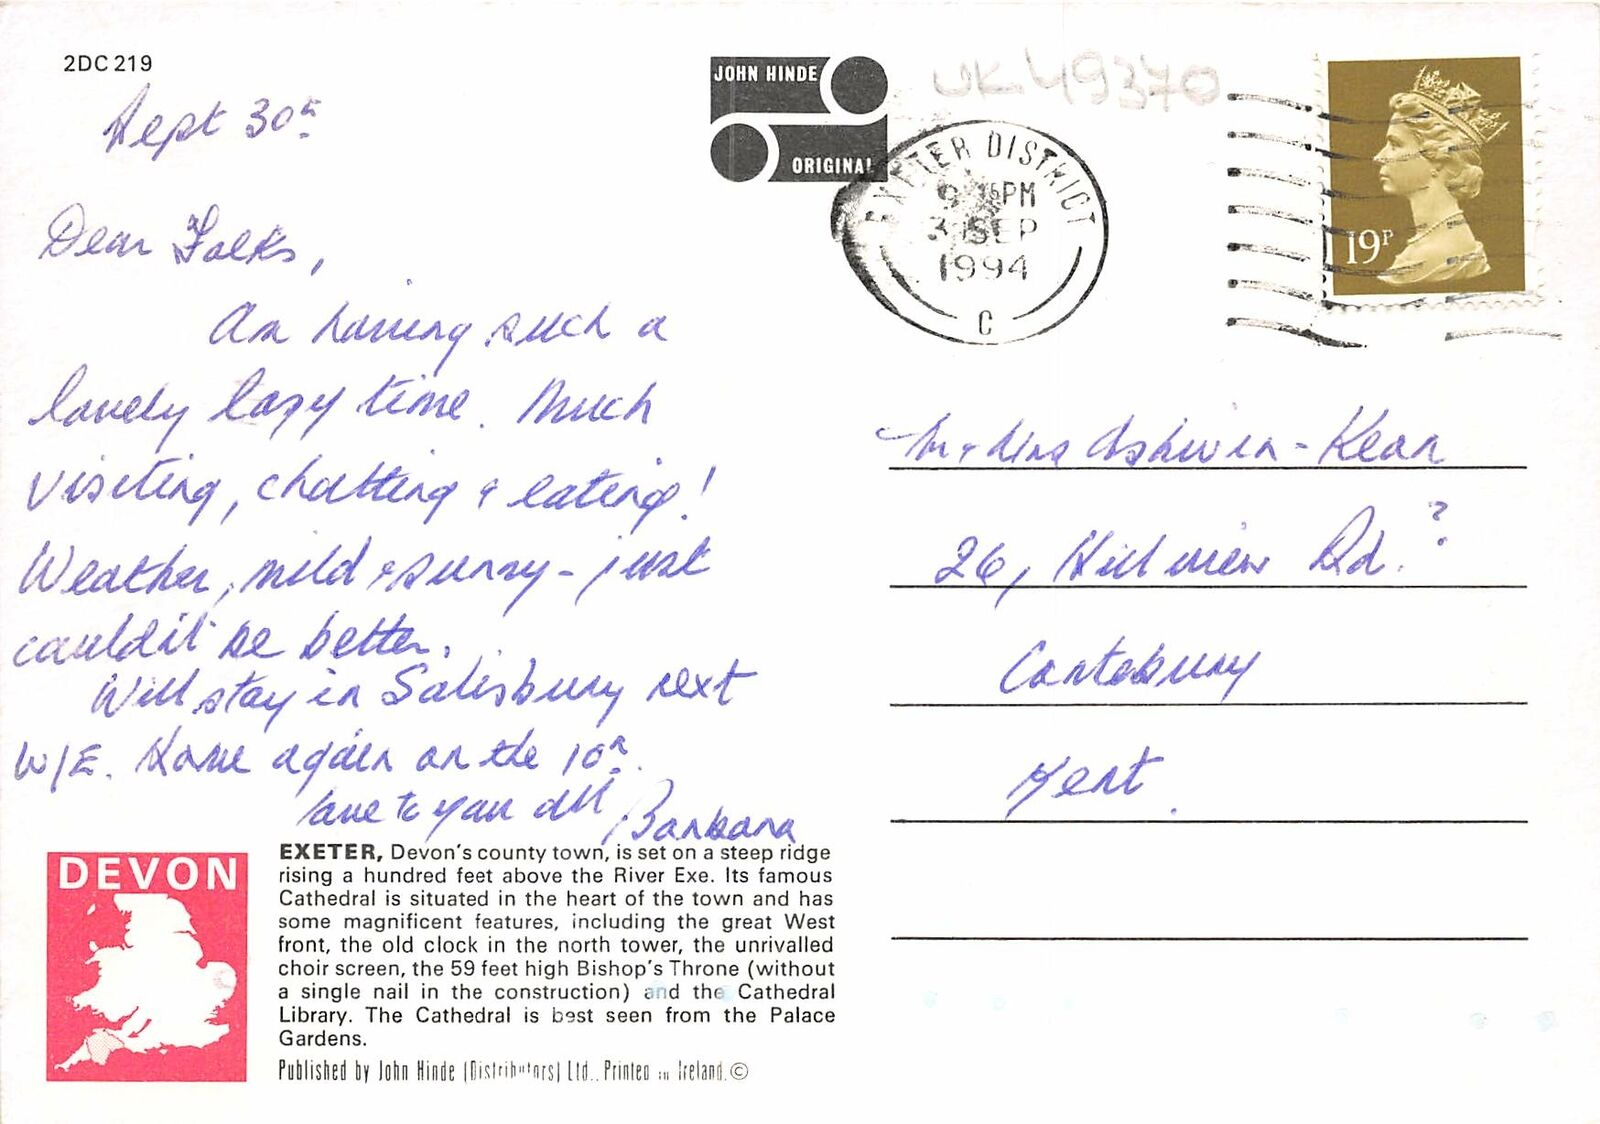 2DC 219
Sept 30th
Dear Folks,
Am having such a
lovely lazy time. Much
visiting, chatting & eating!
Weather, mild & sunny - just
couldn't be better.
Will stay in Salisbury next
W/E. Home again on the 10th.
love to you all Barbara
DEVON
EXETER, Devon's county town, is set on a steep ridge
rising a hundred feet above the River Exe. Its famous
Cathedral is situated in the heart of the town and has
some magnificent features, including the great West
front, the old clock in the north tower, the unrivalled
choir screen, the 59 feet high Bishop's Throne (without
a single nail in the construction) and the Cathedral
Library. The Cathedral is best seen from the Palace
Gardens.
Published by John Hinde (Distributors) Ltd., Printed in Ireland. ©
JOHN HINDE
ORIGINAL
UK 49370
EXETER DISTRICT
PM
SEP
1994
C
19P
Mr & Mrs Ashwin-Kean
26, Hillview Rd. ?
Cantebury
Kent.